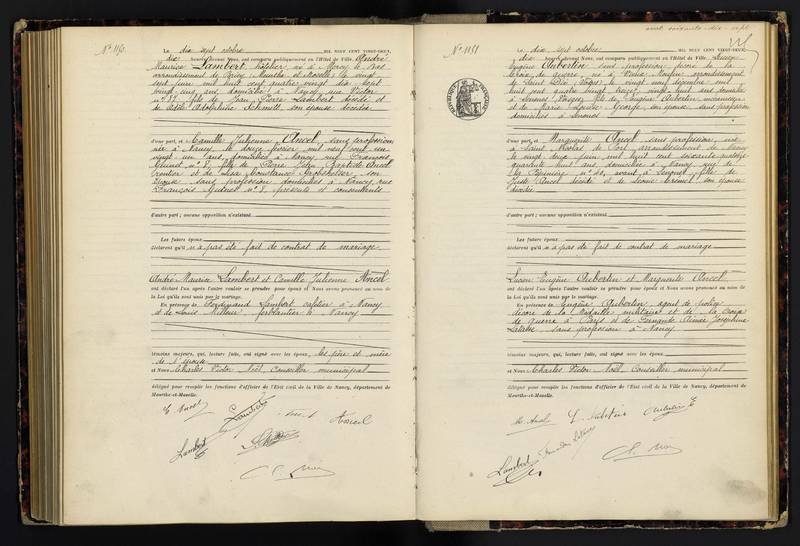 N° 1150.
Le dix sept octobre MIL NEUF CENT VINGT-DEUX,
dix heures devant Nous, ont comparu publiquement en l'Hôtel de Ville André
Maurice Lambert, hôtelier, né à Mercy le Bas
arrondissement de Briey Meurthe et Moselle le vingt
sept juin mil huit cent quatre vingt dix sept
vingt cinq ans, domicilié à Nancy rue Victor
fils de Jean Pierre Lambert décédé et
de Adolphine Schmitt, son épouse décédée
d'une part; et Camille Julienne Ancel, sans profession
née à Nancy, le douze février mil neuf cent un
vingt un ans, domiciliée à Nancy rue François
n° 8, fille de Pierre Jean Baptiste Ancel
et de Constance son
épouse sans profession domiciliés à Nancy rue
François n° 8, présents et consentants
d'autre part; aucune opposition n'existant.
Les futurs époux
déclarent qu'il n'a pas été fait de contrat de mariage
André Maurice Lambert et Camille Julienne Ancel
ont déclaré l'un après l'autre vouloir se prendre pour époux et Nous avons prononcé au nom de
la Loi qu'ils sont unis par le mariage.
En présence de Ferdinand Lambert cafetier à Nancy
et de Louis ferblantier à Nancy
témoins majeurs, qui, lecture faite, ont signé avec les époux, les père et mère
de l'épouse
et Nous Charles Victor Noël, Conseiller municipal
délégué pour remplir les fonctions d'officier de l'État civil de la Ville de Nancy, département de
Meurthe-et-Moselle.
Ancel
Lambert
cent soixante-dix-sept
N° 1151
Le dix sept octobre MIL NEUF CENT VINGT-DEUX,
dix heures devant Nous, ont comparu publiquement en l'Hôtel de Ville Lucien
Eugène Aubertin sans profession décoré de la
Croix de guerre, né à arrondissement
de Saint Dié Vosges le vingt neuf décembre mil
huit cent quatre vingt treize, vingt huit ans domicilié
à Senones Vosges, fils de Eugène Aubertin
et de Marie George, son épouse, sans profession
domiciliés à Senones
d'une part; et Marguerite Ancel sans profession, née
à Saint Nicolas de Port arrondissement de Nancy
le vingt deux juin mil huit cent soixante quatorze
quarante huit ans, domiciliée à Nancy rue de
la Pépinière n° avant à fille de
Ancel décédé et de son épouse
décédée
d'autre part; aucune opposition n'existant.
Les futurs époux
déclarent qu'il n'a pas été fait de contrat de mariage
Lucien Eugène Aubertin et Marguerite Ancel
ont déclaré l'un après l'autre vouloir se prendre pour époux et Nous avons prononcé au nom de
la Loi qu'ils sont unis par le mariage.
En présence de Aubertin, agent de police
décoré de la Médaille militaire et de la croix
de guerre à Paris et de Fernande Aimée Joséphine
sans profession à Nancy
témoins majeurs, qui, lecture faite, ont signé avec les époux
et Nous Charles Victor Noël, Conseiller municipal
délégué pour remplir les fonctions d'officier de l'État civil de la Ville de Nancy, département de
Meurthe-et-Moselle.
Lambert